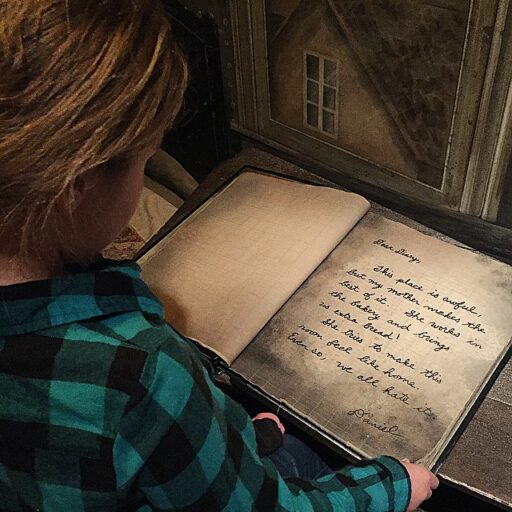 Dear Diary,
This place is awful,
but my mother makes the
best of it. She works in
the bakery and brings
us extra bread!
She tries to make this
room feel like home.
Even so, we all hate it.
Daniel